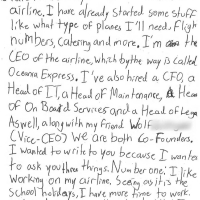 airline. I have already started some stuff
like what type of planes I'll need. Flight
numbers, catering and more. I'm the
CEO of the airline, which by the way is called
Oceana Express. I've also hired a CFO, a
Head of IT, a Head of Maintenance, a Head
of On Board Services and a Head of Legal
Aswell, along with my friend Wolf
(Vice-CEO) We are both Co-Founders.
I wanted to write to you because I wanted
to ask you three things. Number one: I like
working on my airline, Seeing as it's the
School holidays, I have more time to work.